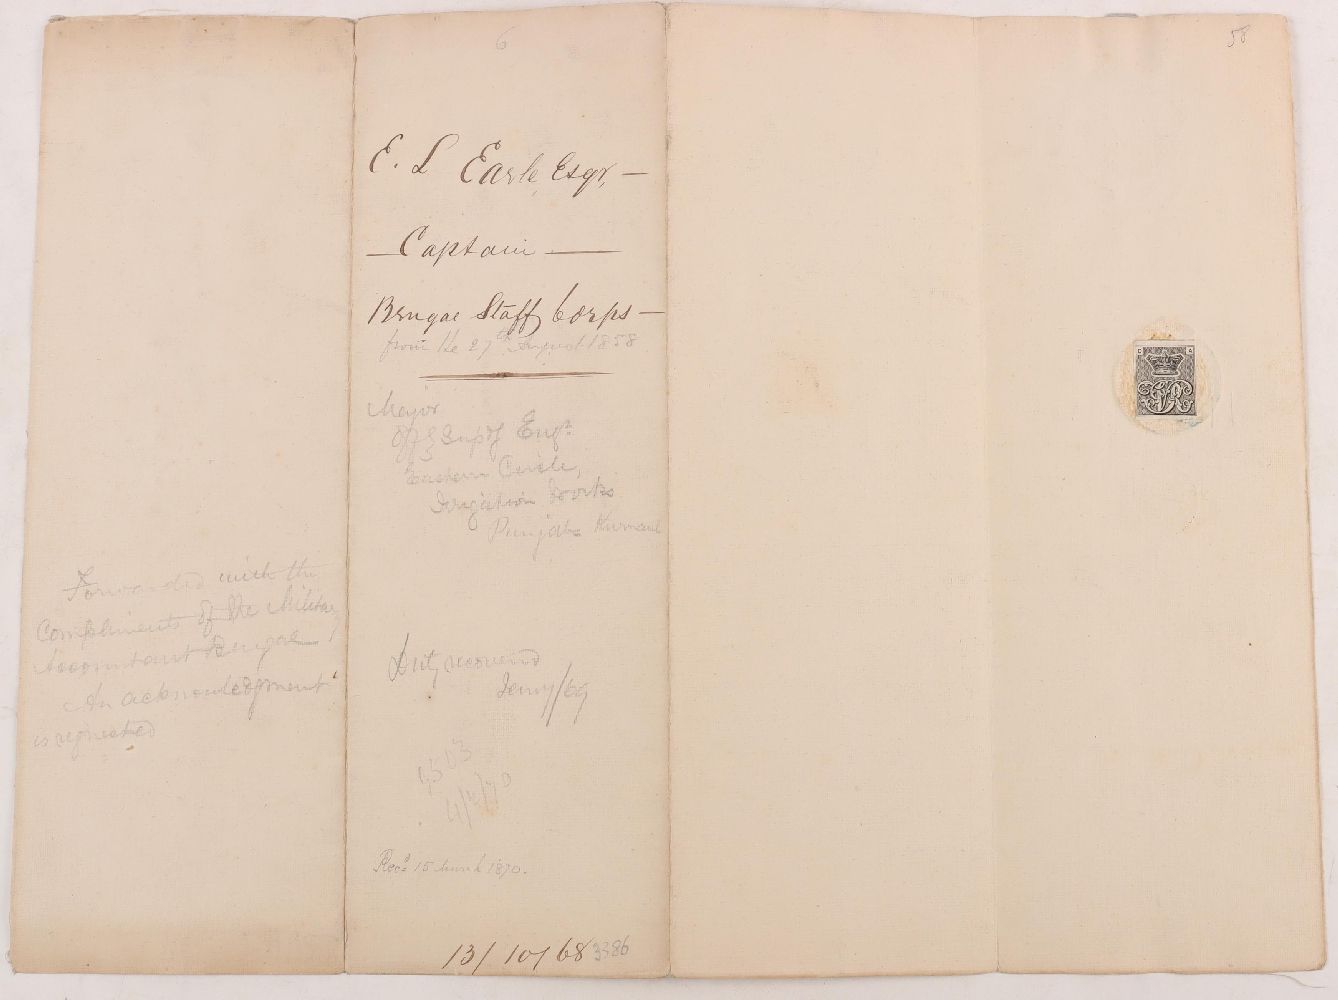 6
58
E. L Earle, Esqr, —
— Captain —
Bengal Staff Corps —
from the 27th August 1858
Major
Offg Supdg Engr.
Eastern Circle,
Irrigation Works
Punjab Kurnaul
Duty recovered
Jany/69
Forwarded with the
Compliments of the Military
Accountant Bengal
An acknowledgment
is requested
4503
4/2/70
Recd 15 March 1870.
13/10/68 3386
C A
VR